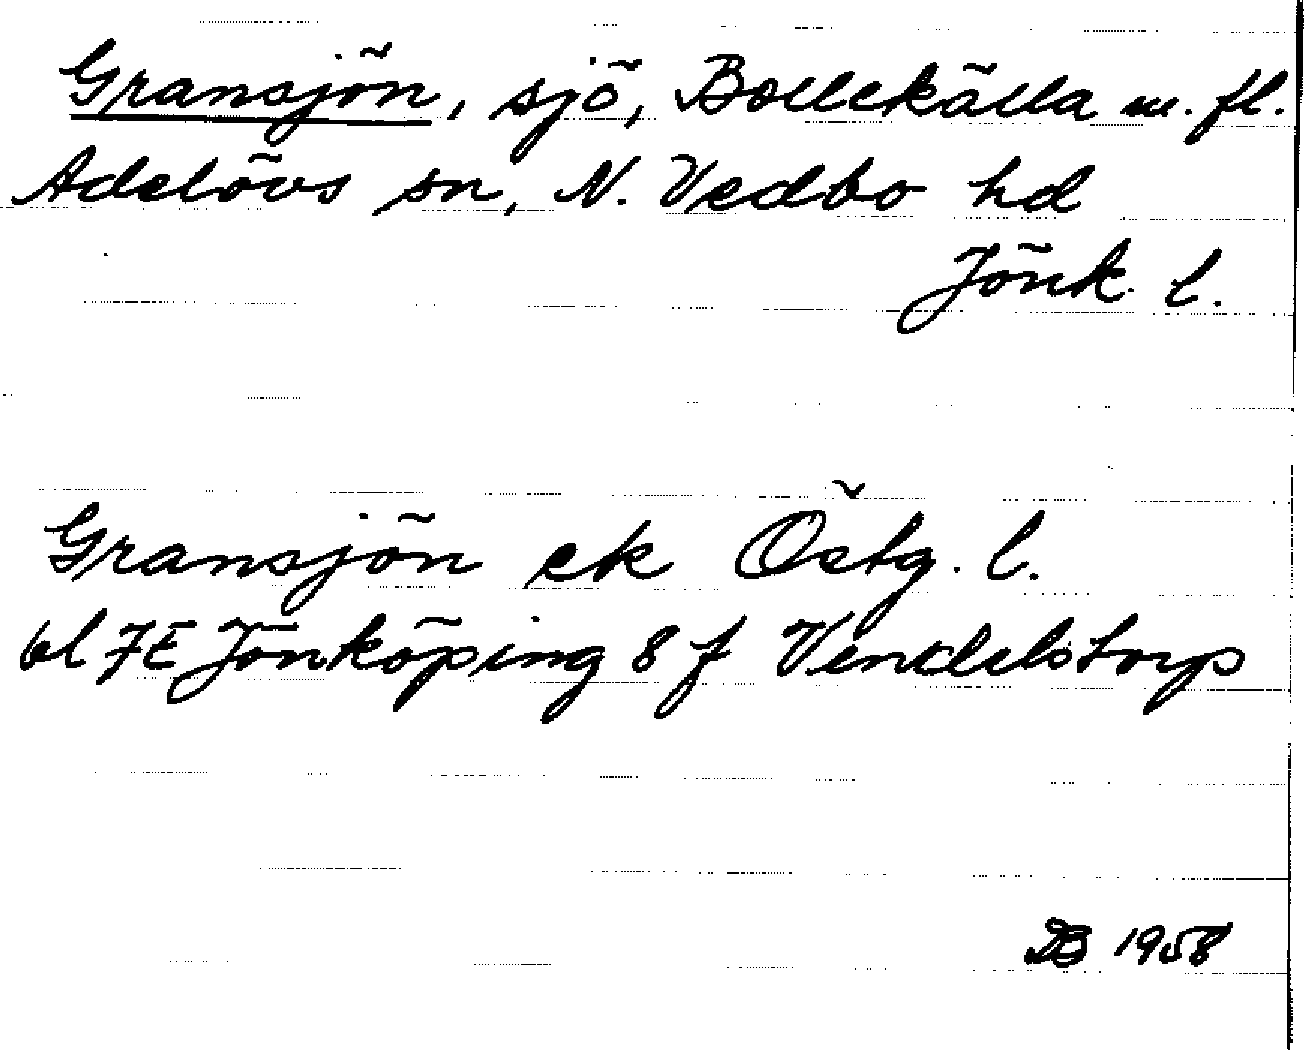 Gransjön, sjö, Bollekälla m. fl.
Adelövs sn, N. Vedbo hd
Jönk. l.
Gransjön ek Östg. l.
bl 7E Jönköping 8 f Vendelstorp
DB 1958